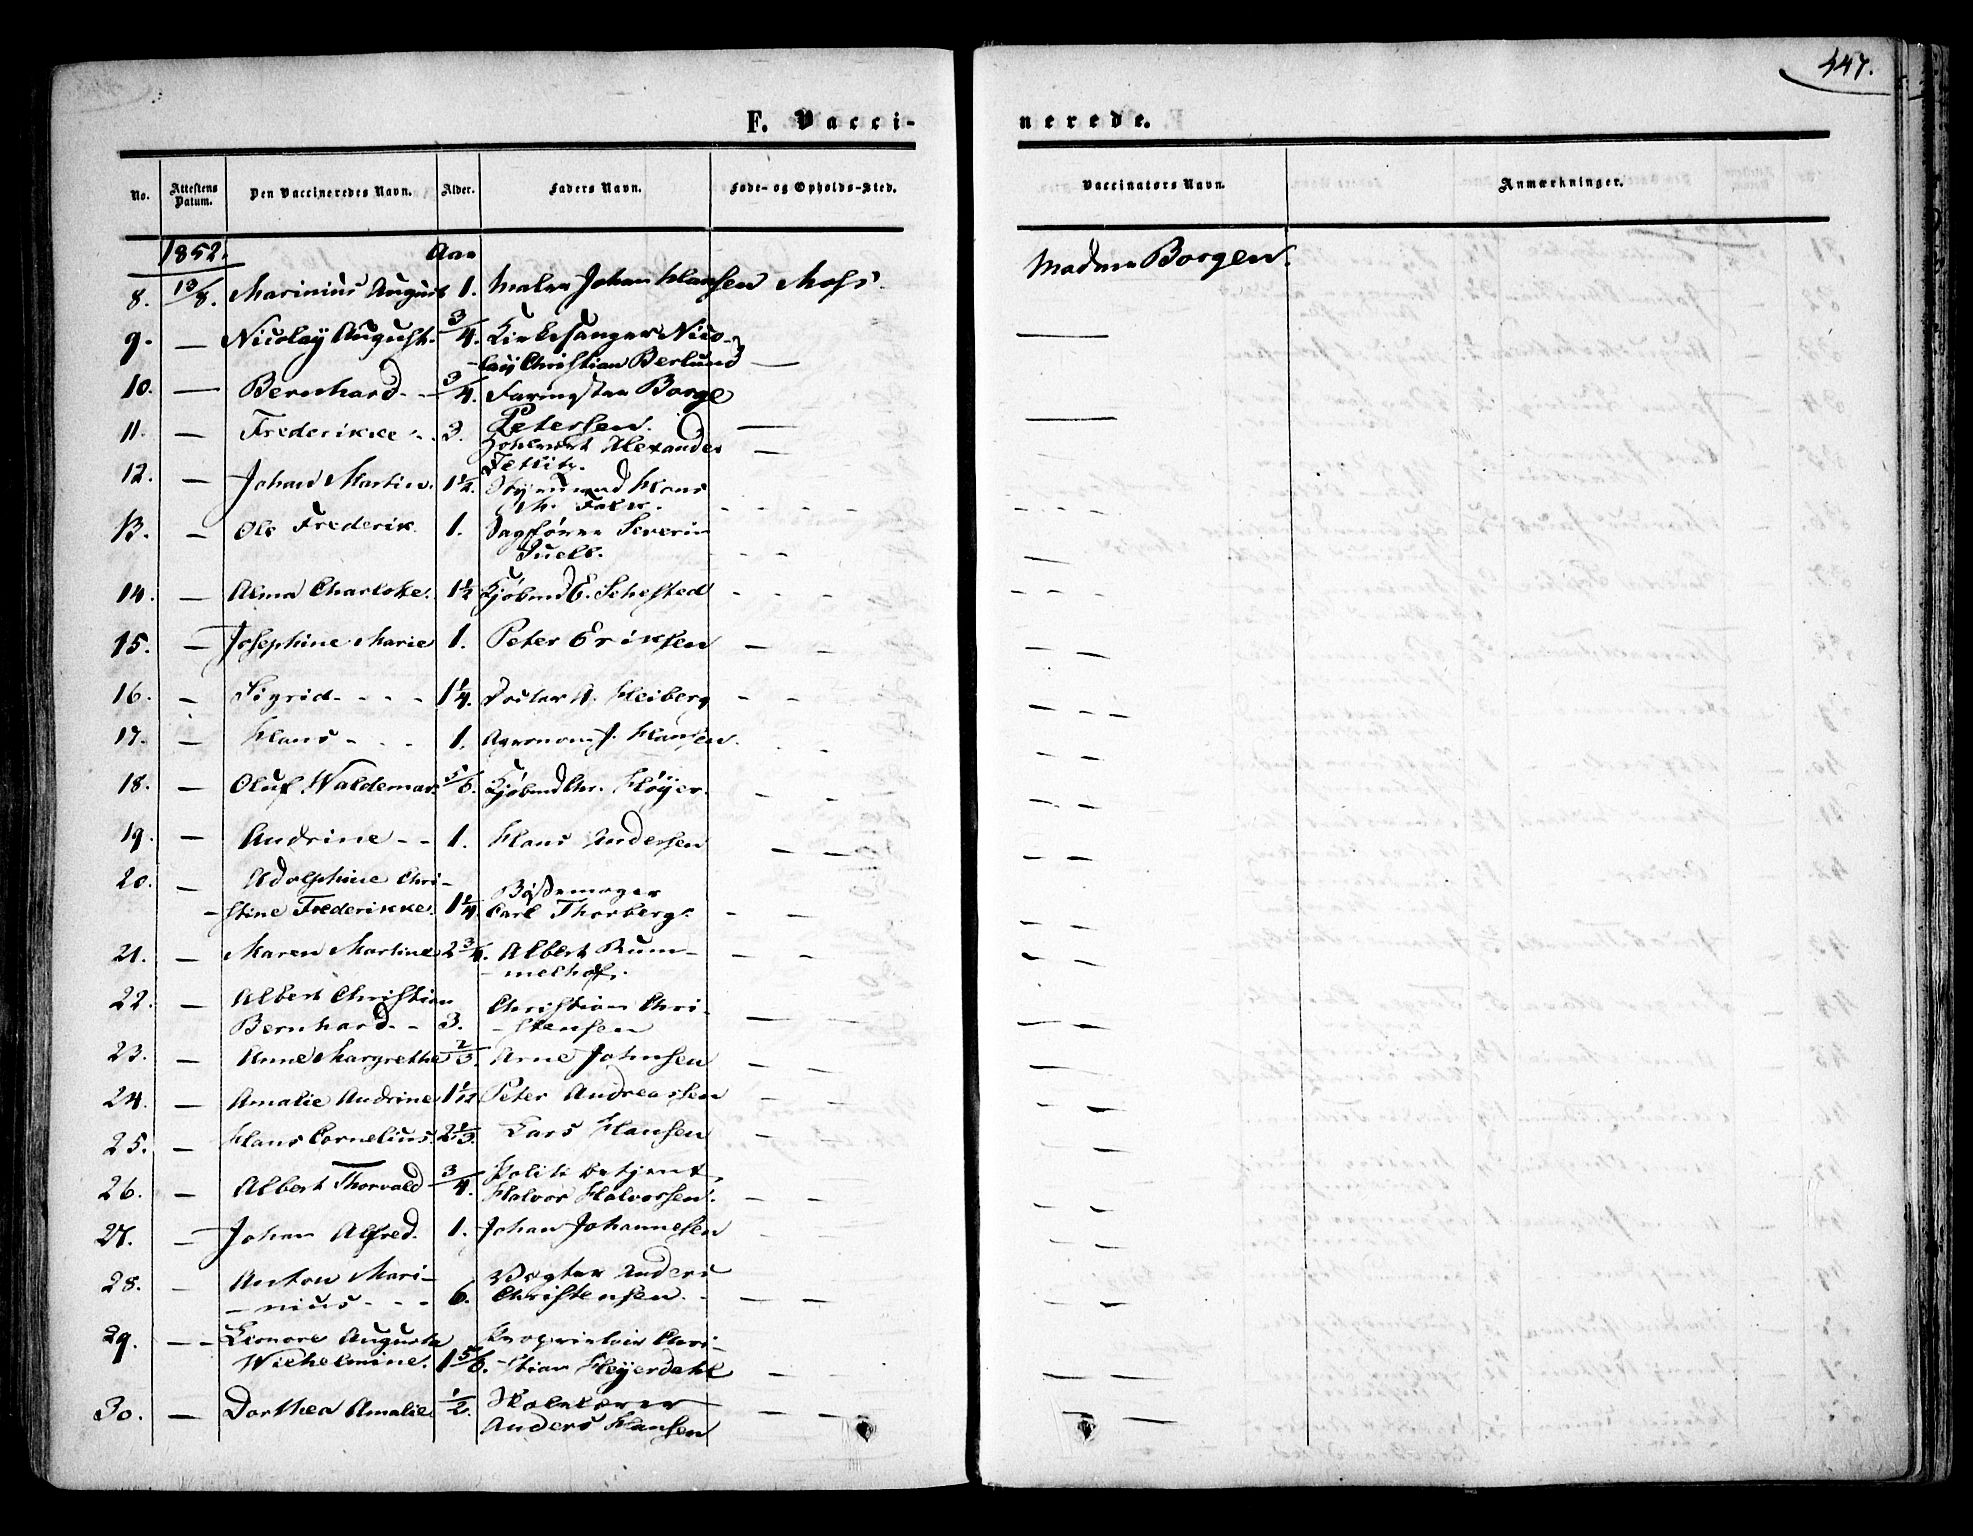 447.
F. Vacci-
nerede.
No. Attestens Datum. Den Vaccineredes Navn. Alder. Faders Navn. Føde- og Opholds-Sted. Vaccinators Navn. Anmærkninger.
1852. Aar
8. 13/8. Marinius August 1. Maler Johan Hansen Moss. Madam Borgen.
9. — Nicolay August. 3/4. Kirkesanger Nico-
lay Christian Berlund —
10. — Bernhard - - 3/4. Borge
Petersen. —
11. — Frederikke - . 3. Alexander
—
12. — Johan Martin. 1 1/2. Hans
- - - -
13. — Ole Frederik. 1. Sagfører Severin
Juell. - -
14. — Alma Charlotte. 1 1/2 Kjøbmd E. Schested - - -
15. — Josephine Marie 1. Peter Eriksen — -
16. — Sigrid - - - - 1 1/4. Doctor A. Heiberg - - -
17. — Hans - - - 1. Agronom J. Hansen. - -
18. — Oluf Waldemar 5/6. Kjøbmd Chr. Høyer. - -
19. — Andrine - - 1. Hans Andersen — —
20. — Adolphine Chri-
- stine Frederikke. 1 1/4. Bøssemager
Carl Thorberg. - —
21. — Maren Martine 2 3/4. Albert Rum-
- melhof. — -
22. — Albert Christian
Bernhard. - 3. Christian Chri-
- stensen — —
23. — Anne Margrethe 2/3. Arne Johnsen - —
24. — Amalie Andrine 1 1/12 Peter Andreassen - -
25. — Hans Cornelius. 2 1/3. Lars Hansen -
26. — Albert Thorvald 3/4. Politibetjent
Halvor Halvorsen. — —
27. — Johan Alfred. 1. Johan Johannesen - -
28. - Anton Mari-
- nius - - - 6. Vægter Anders
Christensen. - — —
29. — - Leonore Augusta
Wilhelmine. 1 5/6. Proprietair Chri-
- stian Heyerdahl - -
30. — Dorthea Amalie 1/2. Skolelærer
Anders Hansen — —